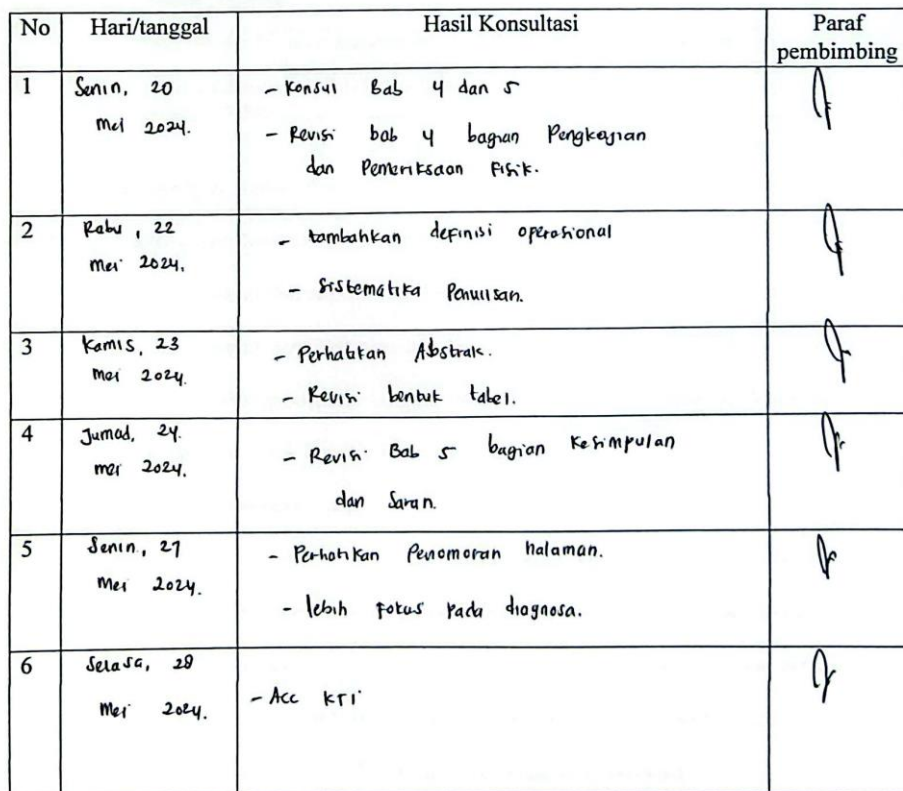 No Hari/tanggal Hasil Konsultasi Paraf
pembimbing
1 Senin, 20 - Konsul Bab 4 dan 5
Mei 2024. - Revisi bab 4 bagian Pengkajian
dan Pemeriksaan Fisik.
2 Rabu, 22 - tambahkan definisi operasional
mei 2024. - Sistematika Penulisan.
3 Kamis, 23 - Perhatikan Abstrak.
mei 2024. - Revisi bentuk tabel.
4 Jumad, 24. - Revisi Bab 5 bagian Kesimpulan
mei 2024. dan Saran.
5 Senin, 27 - Perhatikan Penomoran halaman.
Mei 2024. - lebih fokus pada diagnosa.
6 Selasa, 28
Mei 2024. - Acc KTI